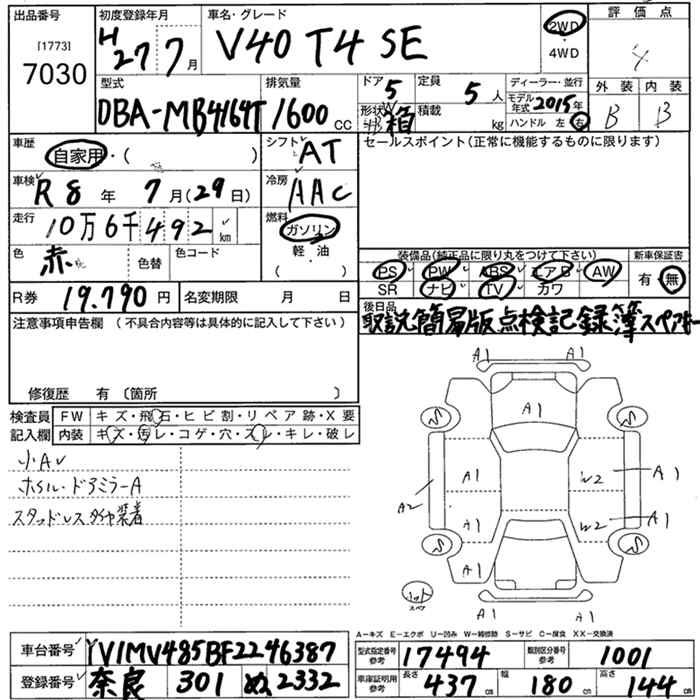 出品番号 初度登録年月 車名・グレード 評価点
[1773]
7030 H27 7月 V40 T4 SE 2WD・4WD 4
型式 排気量 ドア 5 定員 5人 ディーラー・並行 外装 内装
DBA-MB4164T 1600cc 形状 箱 積載 kg モデル年式 2015年 B B
ハンドル 左 右
車歴 自家用・( ) シフト AT セールスポイント(正常に機能するものに限ります)
車検 R8年 7月(29日) 冷房 AAC
走行 10万6千492km 燃料 ガソリン
軽・油
( )
色 赤 色替 色コード 装備品(純正品に限り丸をつけて下さい) 新車保証書
PS PW ABS エアB AW 有・無
SR ナビ TV カワ
R券 19.790円 名変期限 月 日 後日品
取説簡易版点検記録簿スペアキー
注意事項申告欄 (不具合内容等は具体的に記入して下さい)
修復歴 有 〔箇所 〕
検査員 FW キズ・飛石・ヒビ割・リペア跡・X要
記入欄 内装 キズ・汚レ・コゲ・穴・スレ・キレ・破レ
小Aレ
ホイル・ドアミラーA
スタッドレスタイヤ装着
A1 A1
A1
S S
A1 W2 A1
A2 A1 W2 A1
S S
A1
スペア
A1 A1
A-キズ E-エクボ U-凹み W-補修跡 S-サビ C-腐食 XX-交換済
車台番号 YV1MV485BF2246387 型式指定番号 参考 17494 類別区分番号 参考 1001
登録番号 奈良 301 ぬ 2332 車庫証明用 参考 長さ 437cm 幅 180cm 高さ 144cm